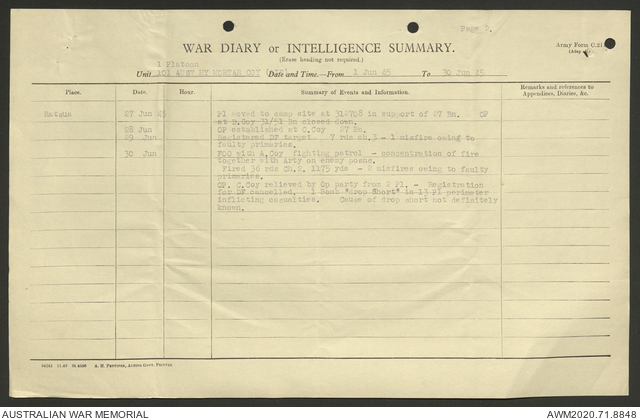 Page 2.
WAR DIARY OR INTELLIGENCE SUMMARY.
Army Form C.21
(Erase heading not required.)
1 Platoon
Unit 101 AUST HY MORTAR COY Date and Time.—From 1 Jun 45 To 30 Jun 45
Place. Date. Hour. Summary of Events and Information. Remarks and references to Appendices, Diaries, &c.
Ratsua 27 Jun 45 Pl moved to camp site at 312708 in support of 27 Bn. OP
at D.Coy 31/51 Bn closed down.
28 Jun OP established at C.Coy 27 Bn.
29 Jun Registered DF target. 7 rds ch.3 - 1 misfire owing to
faulty primaries.
30 Jun FOO with A.Coy fighting patrol - concentration of fire
together with Arty on enemy posns.
Fired 36 rds Ch.2. 1175 yds - 2 misfires owing to faulty
primaries.
OP. C.Coy relieved by Op party from 2 Pl. - Registration
for DF cancelled. 1 Bomb "drop Short" in 13 Pl perimeter
inflicting casualties. Cause of drop short not definitely
known.
A. H. Pettifer, Acting Govt. Printer.
AUSTRALIAN WAR MEMORIAL
AWM2020.71.8848